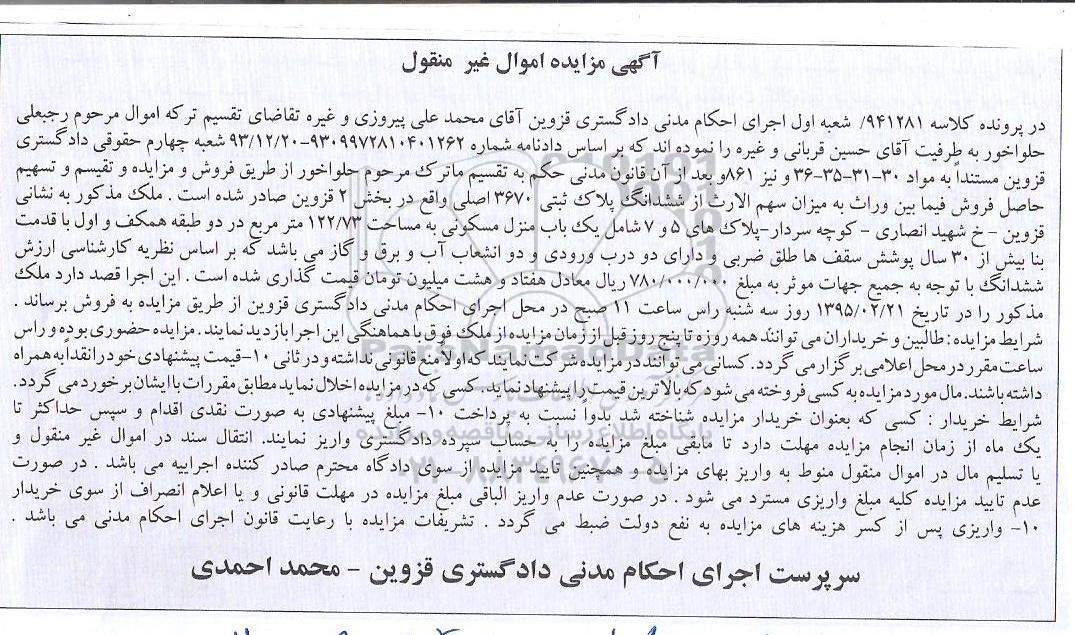 آگهی مزایده اموال غیر منقول
در پرونده کلاسه ۹۴۱۲۸۱/ شعبه اول اجرای احکام مدنی دادگستری قزوین آقای محمد علی پیروزی و غیره تقاضای تقسیم ترکه اموال مرحوم رجبعلی
حلواخور به طرفیت آقای حسین قربانی و غیره را نموده اند که بر اساس دادنامه شماره ۹۳۰۹۹۷۲۸۱۰۴۰۱۲۶۲-۹۳/۱۲/۲۰ شعبه چهارم حقوقی دادگستری
قزوین مستنداً به مواد ۳۰-۳۱-۳۵-۳۶ و نیز ۸۶۱و بعد از آن قانون مدنی حکم به تقسیم ماترک مرحوم حلواخور از طریق فروش و مزایده و تقیسم و تسهیم
حاصل فروش فیما بین وراث به میزان سهم الارث از ششدانگ پلاک ثبتی ۳۶۷۰ اصلی واقع در بخش ۲ قزوین صادر شده است . ملک مذکور به نشانی
قزوین - خ شهید انصاری - کوچه سردار-پلاک های ۵ و ۷ شامل یک باب منزل مسکونی به مساحت ۱۲۲/۷۳ متر مربع در دو طبقه همکف و اول با قدمت
بنا بیش از ۳۰ سال پوشش سقف ها طلق ضربی و دارای دو درب ورودی و دو انشعاب آب و برق و گاز می باشد که بر اساس نظریه کارشناسی ارزش
ششدانگ با توجه به جمیع جهات موثر به مبلغ ۷۸۰/۰۰۰/۰۰۰ ریال معادل هفتاد و هشت میلیون تومان قیمت گذاری شده است . این اجرا قصد دارد ملک
مذکور را در تاریخ ۱۳۹۵/۰۲/۲۱ روز سه شنبه راس ساعت ۱۱ صبح در محل اجرای احکام مدنی دادگستری قزوین از طریق مزایده به فروش برساند .
شرایط مزایده : طالبین و خریداران می توانند همه روزه تا پنج روز قبل از زمان مزایده از ملک فوق با هماهنگی این اجرا بازدید نمایند. مزایده حضوری بوده و راس
ساعت مقرر در محل اعلامی برگزار می گردد. کسانی می توانند در مزایده شرکت نمایند که اولاً منع قانونی نداشته و در ثانی ۱۰-قیمت پیشنهادی خود را نقداً به همراه
داشته باشند. مال مورد مزایده به کسی فروخته می شود که بالاترین قیمت را پیشنهاد نماید. کسی که در مزایده اخلال نماید مطابق مقررات با ایشان برخورد می گردد.
شرایط خریدار : کسی که بعنوان خریدار مزایده شناخته شد بدواً نسبت به پرداخت ۱۰- مبلغ پیشنهادی به صورت نقدی اقدام و سپس حداکثر تا
یک ماه از زمان انجام مزایده مهلت دارد تا مابقی مبلغ مزایده را به حساب سپرده دادگستری واریز نمایند. انتقال سند در اموال غیر منقول و
یا تسلیم مال در اموال منقول منوط به واریز بهای مزایده و همچنین تایید مزایده از سوی دادگاه محترم صادر کننده اجراییه می باشد . در صورت
عدم تایید مزایده کلیه مبلغ واریزی مسترد می شود . در صورت عدم واریز الباقی مبلغ مزایده در مهلت قانونی و یا اعلام انصراف از سوی خریدار
۱۰- واریزی پس از کسر هزینه های مزایده به نفع دولت ضبط می گردد . تشریفات مزایده با رعایت قانون اجرای احکام مدنی می باشد .
سرپرست اجرای احکام مدنی دادگستری قزوین - محمد احمدی
ParsNamadData
پایگاه اطلاع رسانی مناقصه و مزایده
۰۲۱-۸۸۳۴۹۶۷۰-۵